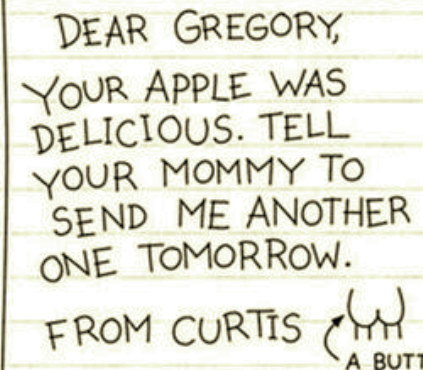 DEAR GREGORY,
YOUR APPLE WAS
DELICIOUS. TELL
YOUR MOMMY TO
SEND ME ANOTHER
ONE TOMORROW.
FROM CURTIS
A BUTT